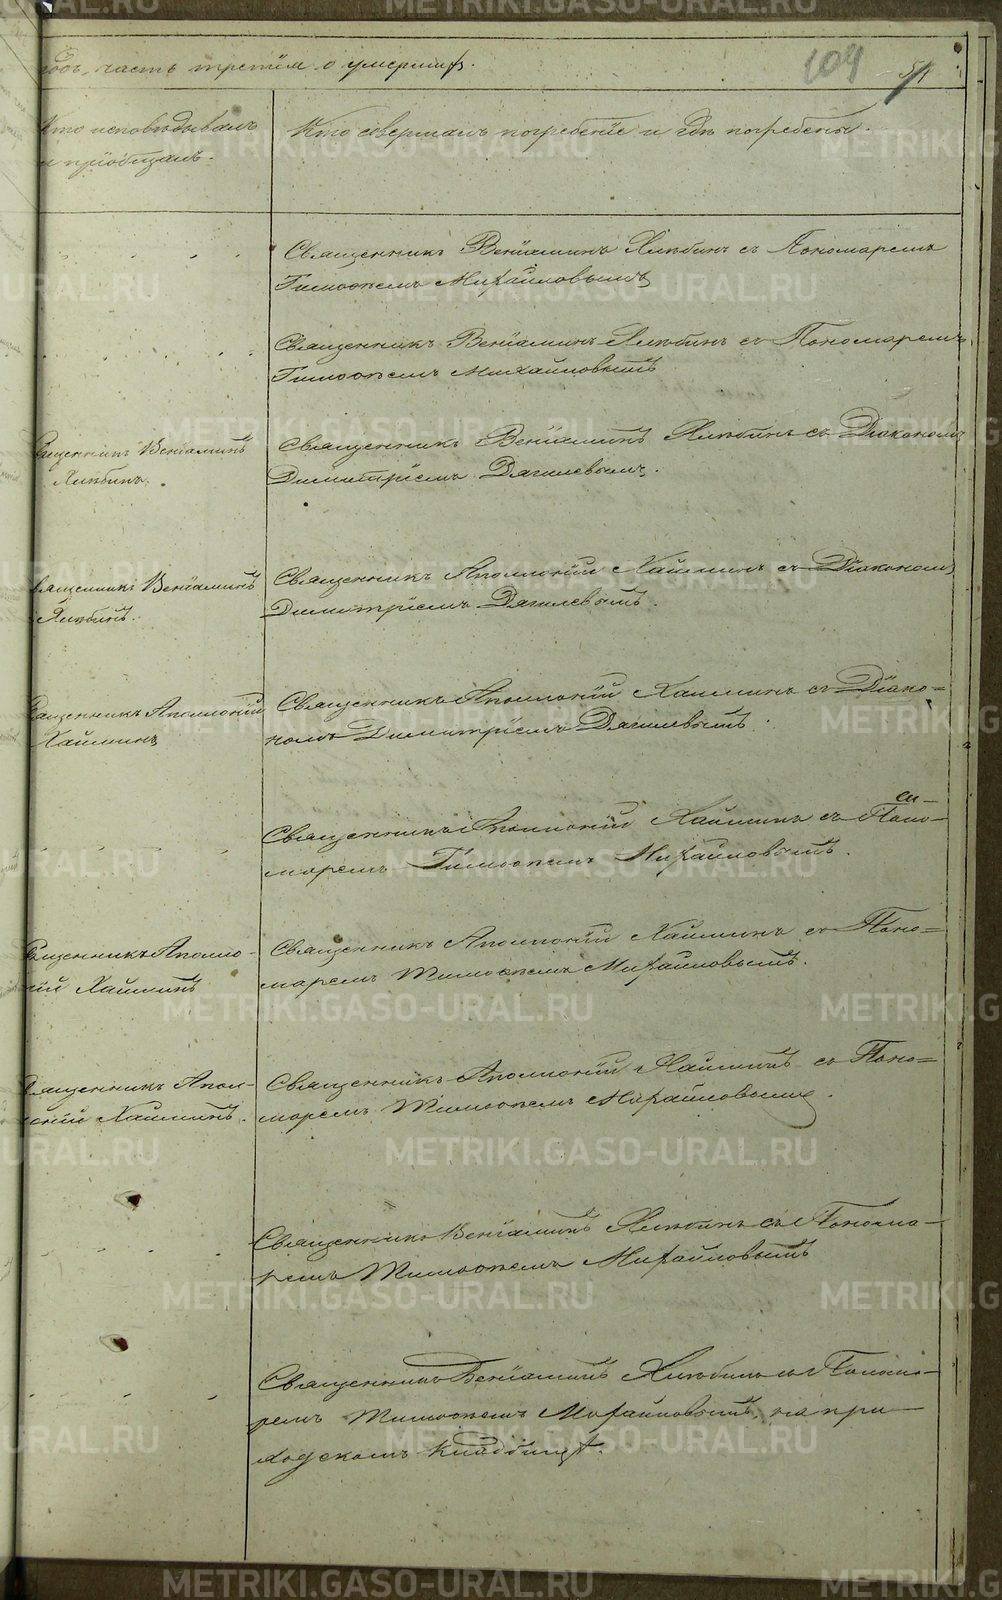 годъ, часть третія о умершихъ.
109
51
Кто исповѣдывалъ
и пріобщалъ.
Кто совершалъ погребеніе и гдѣ погребены.
Священникъ Веніаминъ Хлѣбинъ съ Пономаремъ
Тимоѳеемъ Михайловымъ
Священникъ Веніаминъ Хлѣбинъ съ Пономаремъ
Тимоѳеемъ Михайловымъ
Священникъ Веніаминъ
Хлѣбинъ.
Священникъ Веніаминъ Хлѣбинъ съ Діакономъ
Димитріемъ Дягилевымъ.
Священникъ Веніаминъ
Хлѣбинъ.
Священникъ Аполлоній Хаймин съ Діакономъ
Димитріемъ Дягилевымъ.
Священникъ Аполлоній
Хайминъ
Священникъ Аполлоній Хайминъ съ Діако=
номъ Димитріемъ Дягилевымъ.
Священникъ Аполлоній Хайминъ съ Поно-
маремъ Тимоѳеемъ Михайловымъ.
Священникъ Аполло-
ній Хайминъ
Священникъ Аполлоній Хайминъ съ Поно=
маремъ Тимоѳеемъ Михайловымъ.
Священникъ Апол-
лоній Хайминъ.
Священникъ Аполлоній Хайминъ съ Поно=
маремъ Тимоѳеемъ Михайловымъ.
Священникъ Веніаминъ Хлѣбинъ съ Понома-
ремъ Тимоѳеемъ Михайловымъ
Священникъ Веніаминъ Хлѣбинъ съ Понома-
ремъ Тимоѳеемъ Михайловымъ, на при-
ходскомъ кладбищѣ.